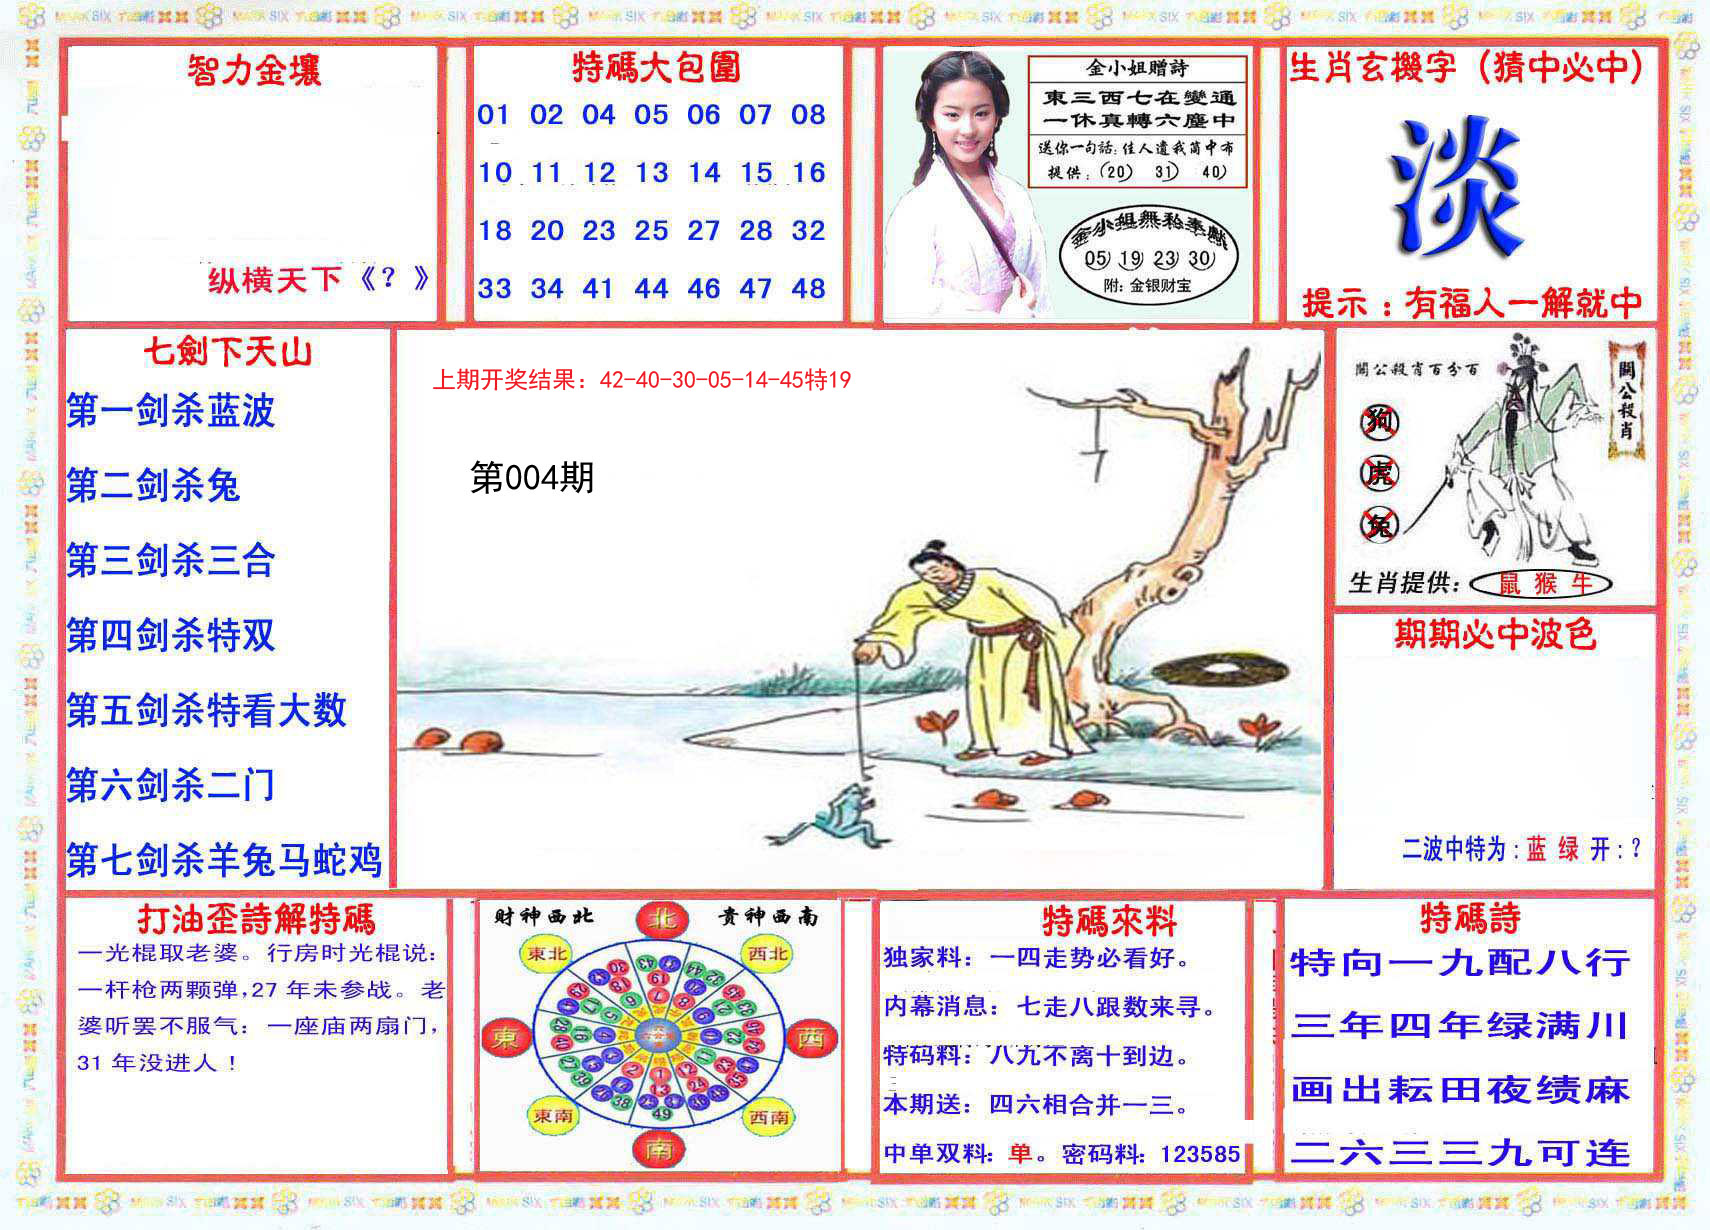 智力金壤
纵横天下《？》
特碼大包圍
01 02 04 05 06 07 08
10 11 12 13 14 15 16
18 20 23 25 27 28 32
33 34 41 44 46 47 48
金小姐赠詩
東三西七在變通
一休真轉六塵中
送你一句話:佳人遺我筒中布
提供:(20) 31) 40)
金小姐無私奉獻
05) 19) 23) 30)
附: 金银财宝
生肖玄機字（猜中必中）
淡
提示：有福人一解就中
七劍下天山
第一剑杀蓝波
第二剑杀兔
第三剑杀三合
第四剑杀特双
第五剑杀特看大数
第六剑杀二门
第七剑杀羊兔马蛇鸡
上期开奖结果：42-40-30-05-14-45特19
第004期
關公殺肖百分百
關公殺肖
狗
虎
兔
生肖提供: 鼠 猴 牛
期期必中波色
二波中特为：蓝 绿 开：？
打油歪詩解特碼
一光棍取老婆。行房时光棍说：
一杆枪两颗弹,27 年未参战。老
婆听罢不服气：一座庙两扇门，
31 年没进人！
财神西北
貴神西南
北
東北
西北
東
西
東南
西南
南
特碼來料
独家料：一四走势必看好。
内幕消息：七走八跟数来寻。
特码料：八九不离十到边。
本期送：四六相合并一三。
中单双料：单。密码料：123585
特碼詩
特向一九配八行
三年四年绿满川
画出耘田夜绩麻
二六三三九可连